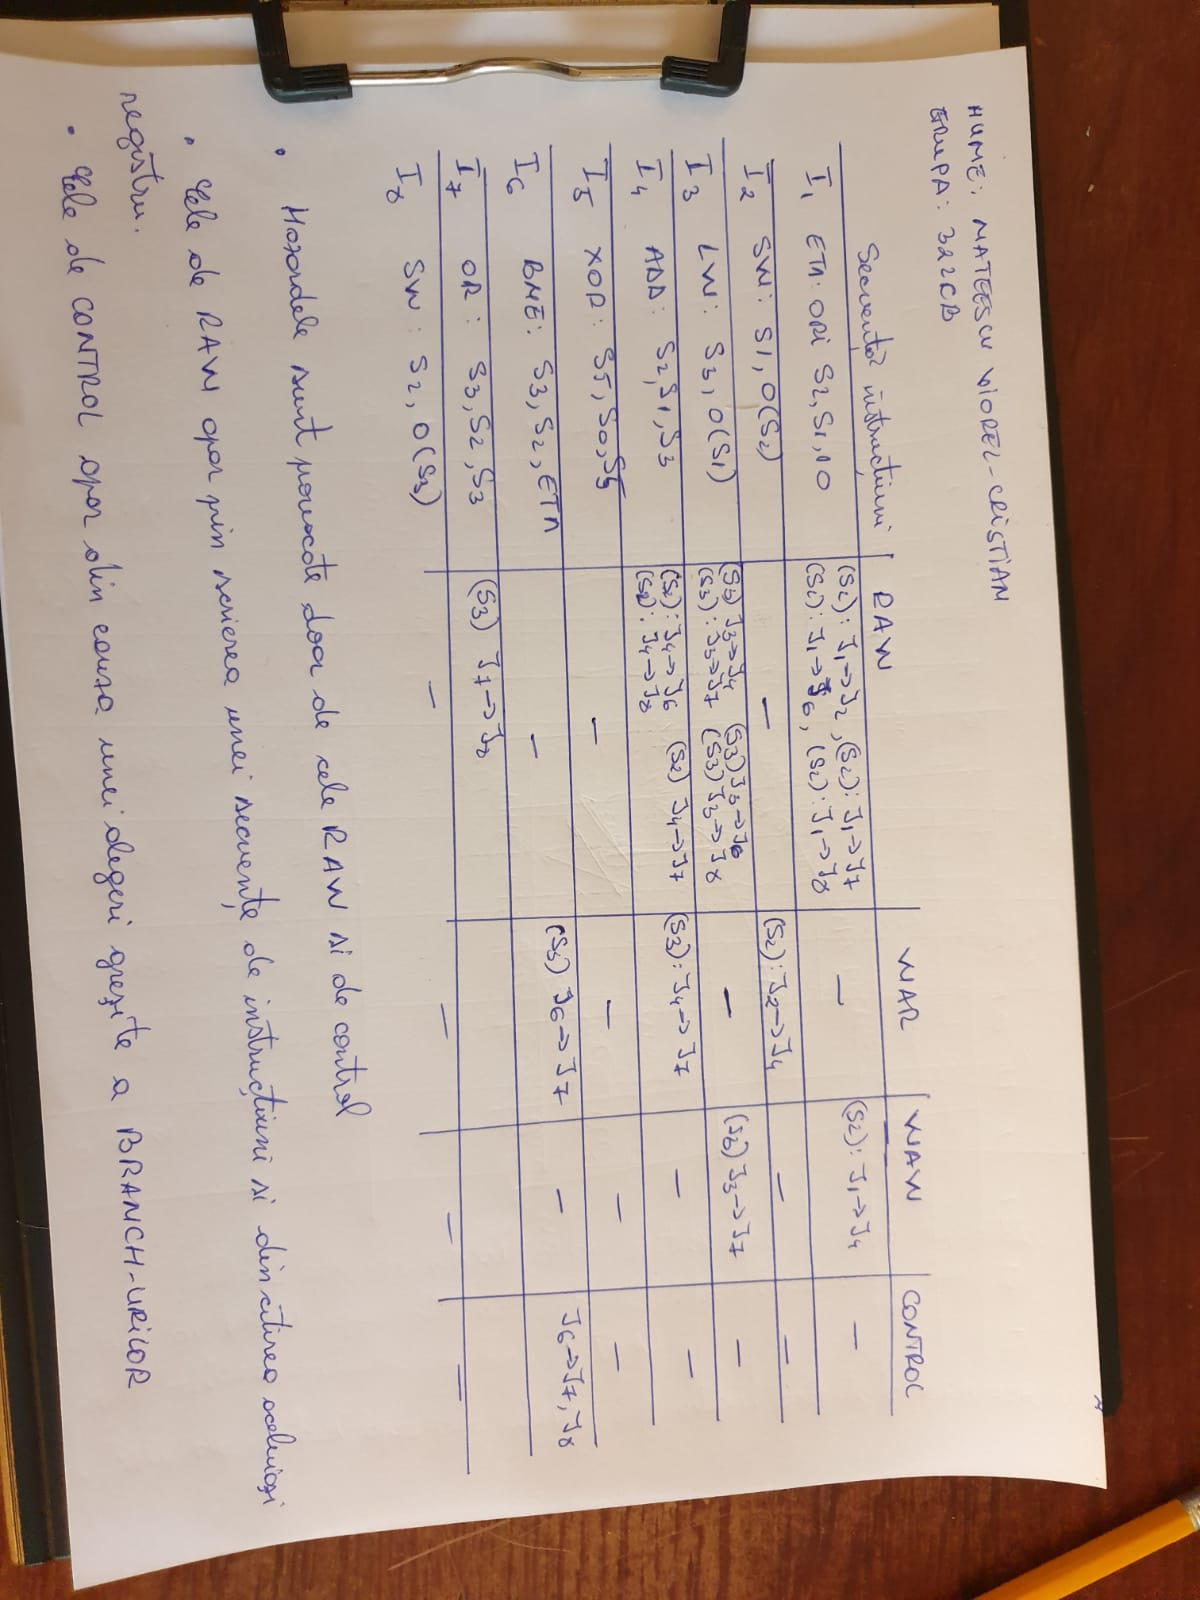 NUME: MATEESCU VIOREL-CRISTIAN
GRUPA: 322CB
Secvență instrucțiuni RAW WAR WAW CONTROL
I1 ET1: ORI S2,S1,10 (S2): I1->I2, (S2): I1->I7 — (S2): I1->I4 —
(S2): I1->I6, (S2): I1->I8
I2 SW: S1, 0(S2) — (S2): I2->I4 — —
I3 LW: S3, 0(S1) (S3) I3->I4 (S3) I3->I6 — (S3) I3->I7 —
(S3): I3->I7 (S3) I3->I8
I4 ADD: S2,S1,S3 (S2): I4->I6 (S2) I4->I7 (S3): I4->I7 — —
(S2): I4->I8
I5 XOR: S5,S0,S5 — — — —
I6 BNE: S3,S2,ET1 — (S3) I6->I7 — I6->I7, I8
I7 OR: S3,S2,S3 (S3) I7->I8
I8 SW: S2, 0(S3) — — — —
• Hazardele sunt provocate doar de cele RAW si de control
• Cele de RAW apar prin scrierea unei secvențe de instrucțiuni si din citirea aceluiași
registru.
• Cele de CONTROL apar din cauza unei alegeri greșite a BRANCH-URILOR